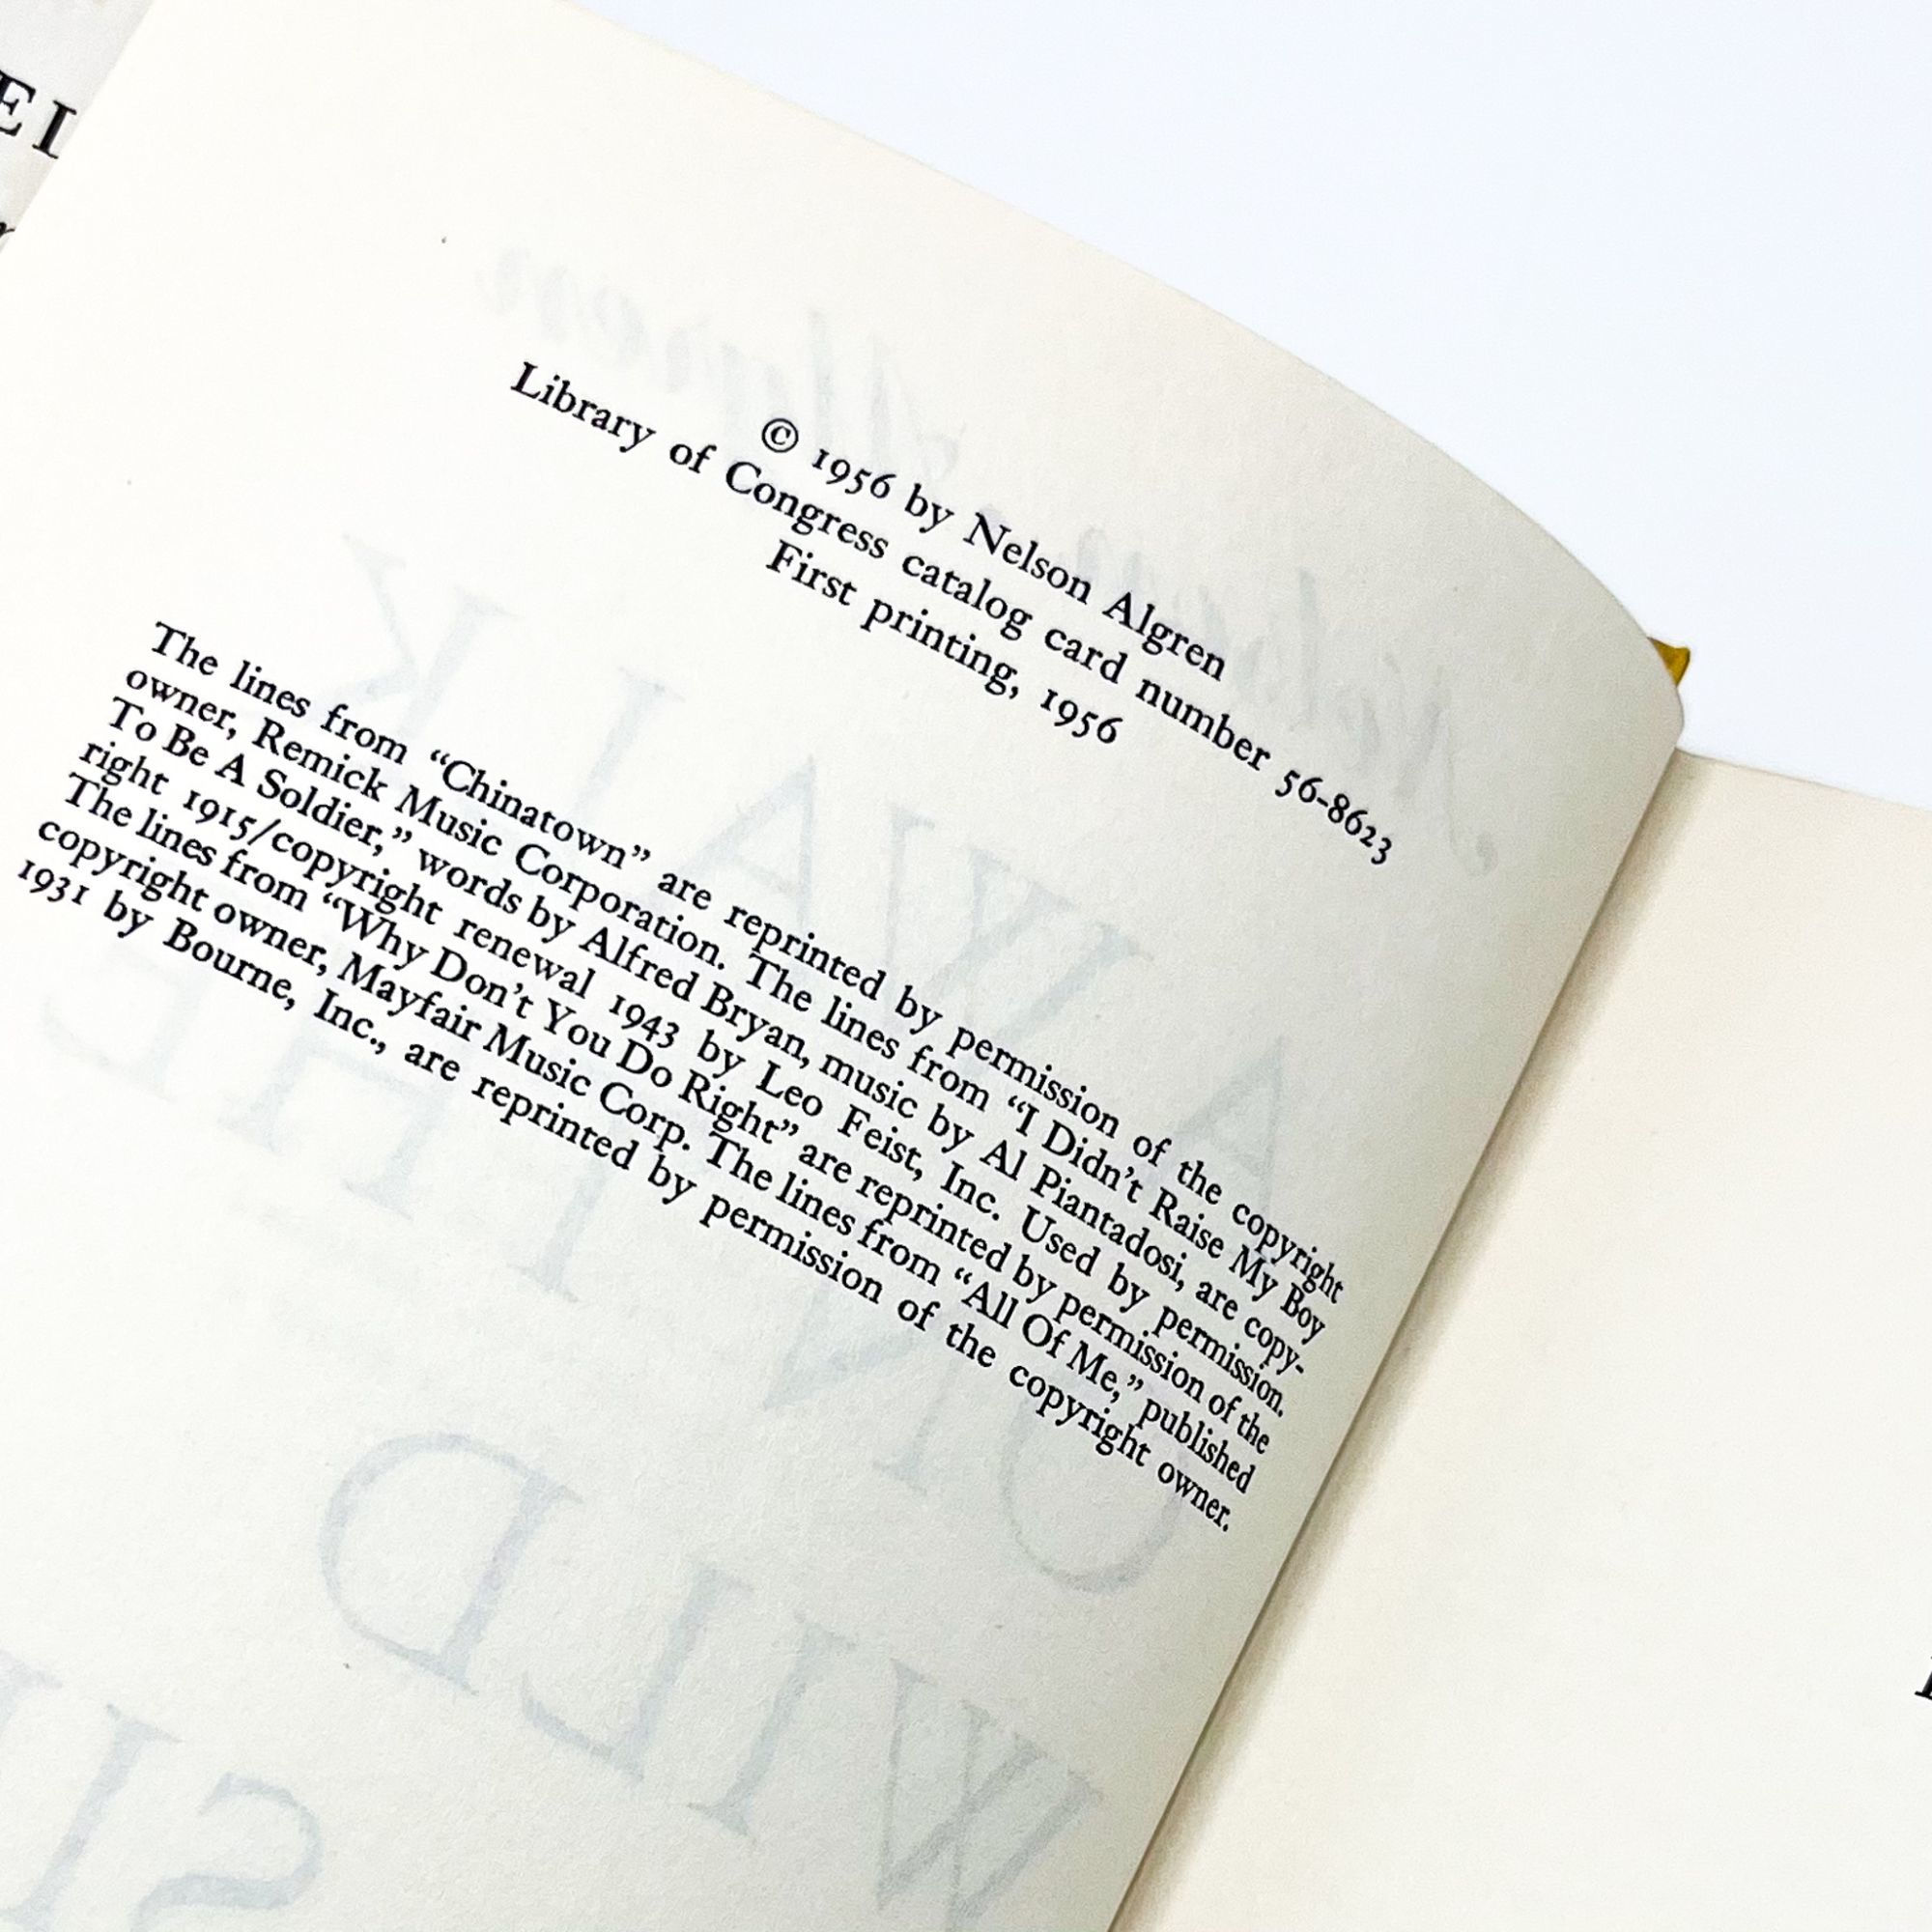 © 1956 by Nelson Algren
Library of Congress catalog card number 56-8623
First printing, 1956
The lines from “Chinatown” are reprinted by permission of the copyright
owner, Remick Music Corporation. The lines from “I Didn’t Raise My Boy
To Be A Soldier,” words by Alfred Bryan, music by Al Piantadosi, are copy-
right 1915/copyright renewal 1943 by Leo Feist, Inc. Used by permission.
The lines from “Why Don’t You Do Right” are reprinted by permission of the
copyright owner, Mayfair Music Corp. The lines from “All Of Me,” published
1931 by Bourne, Inc., are reprinted by permission of the copyright owner.
Nelson Algren
A WALK
ON THE
WILD